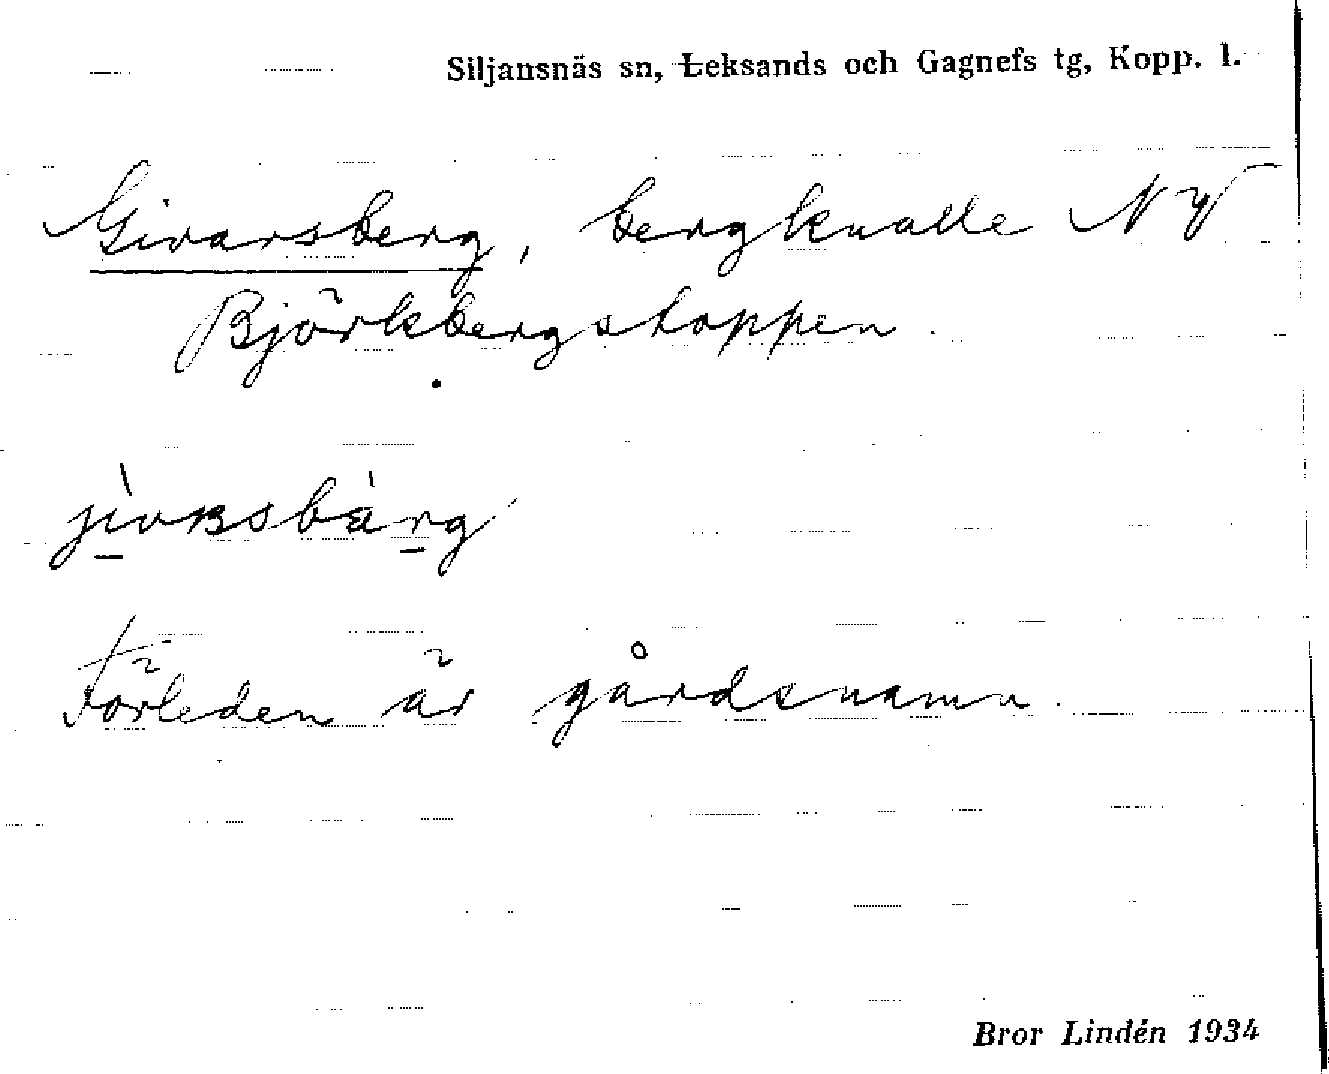 Siljansnäs sn, Leksands och Gagnefs tg, Kopp. l.
Givarsberg, bergknalle NV
Björkbergstoppen.
Förleden är gårdsnamn.
Bror Lindén 1934